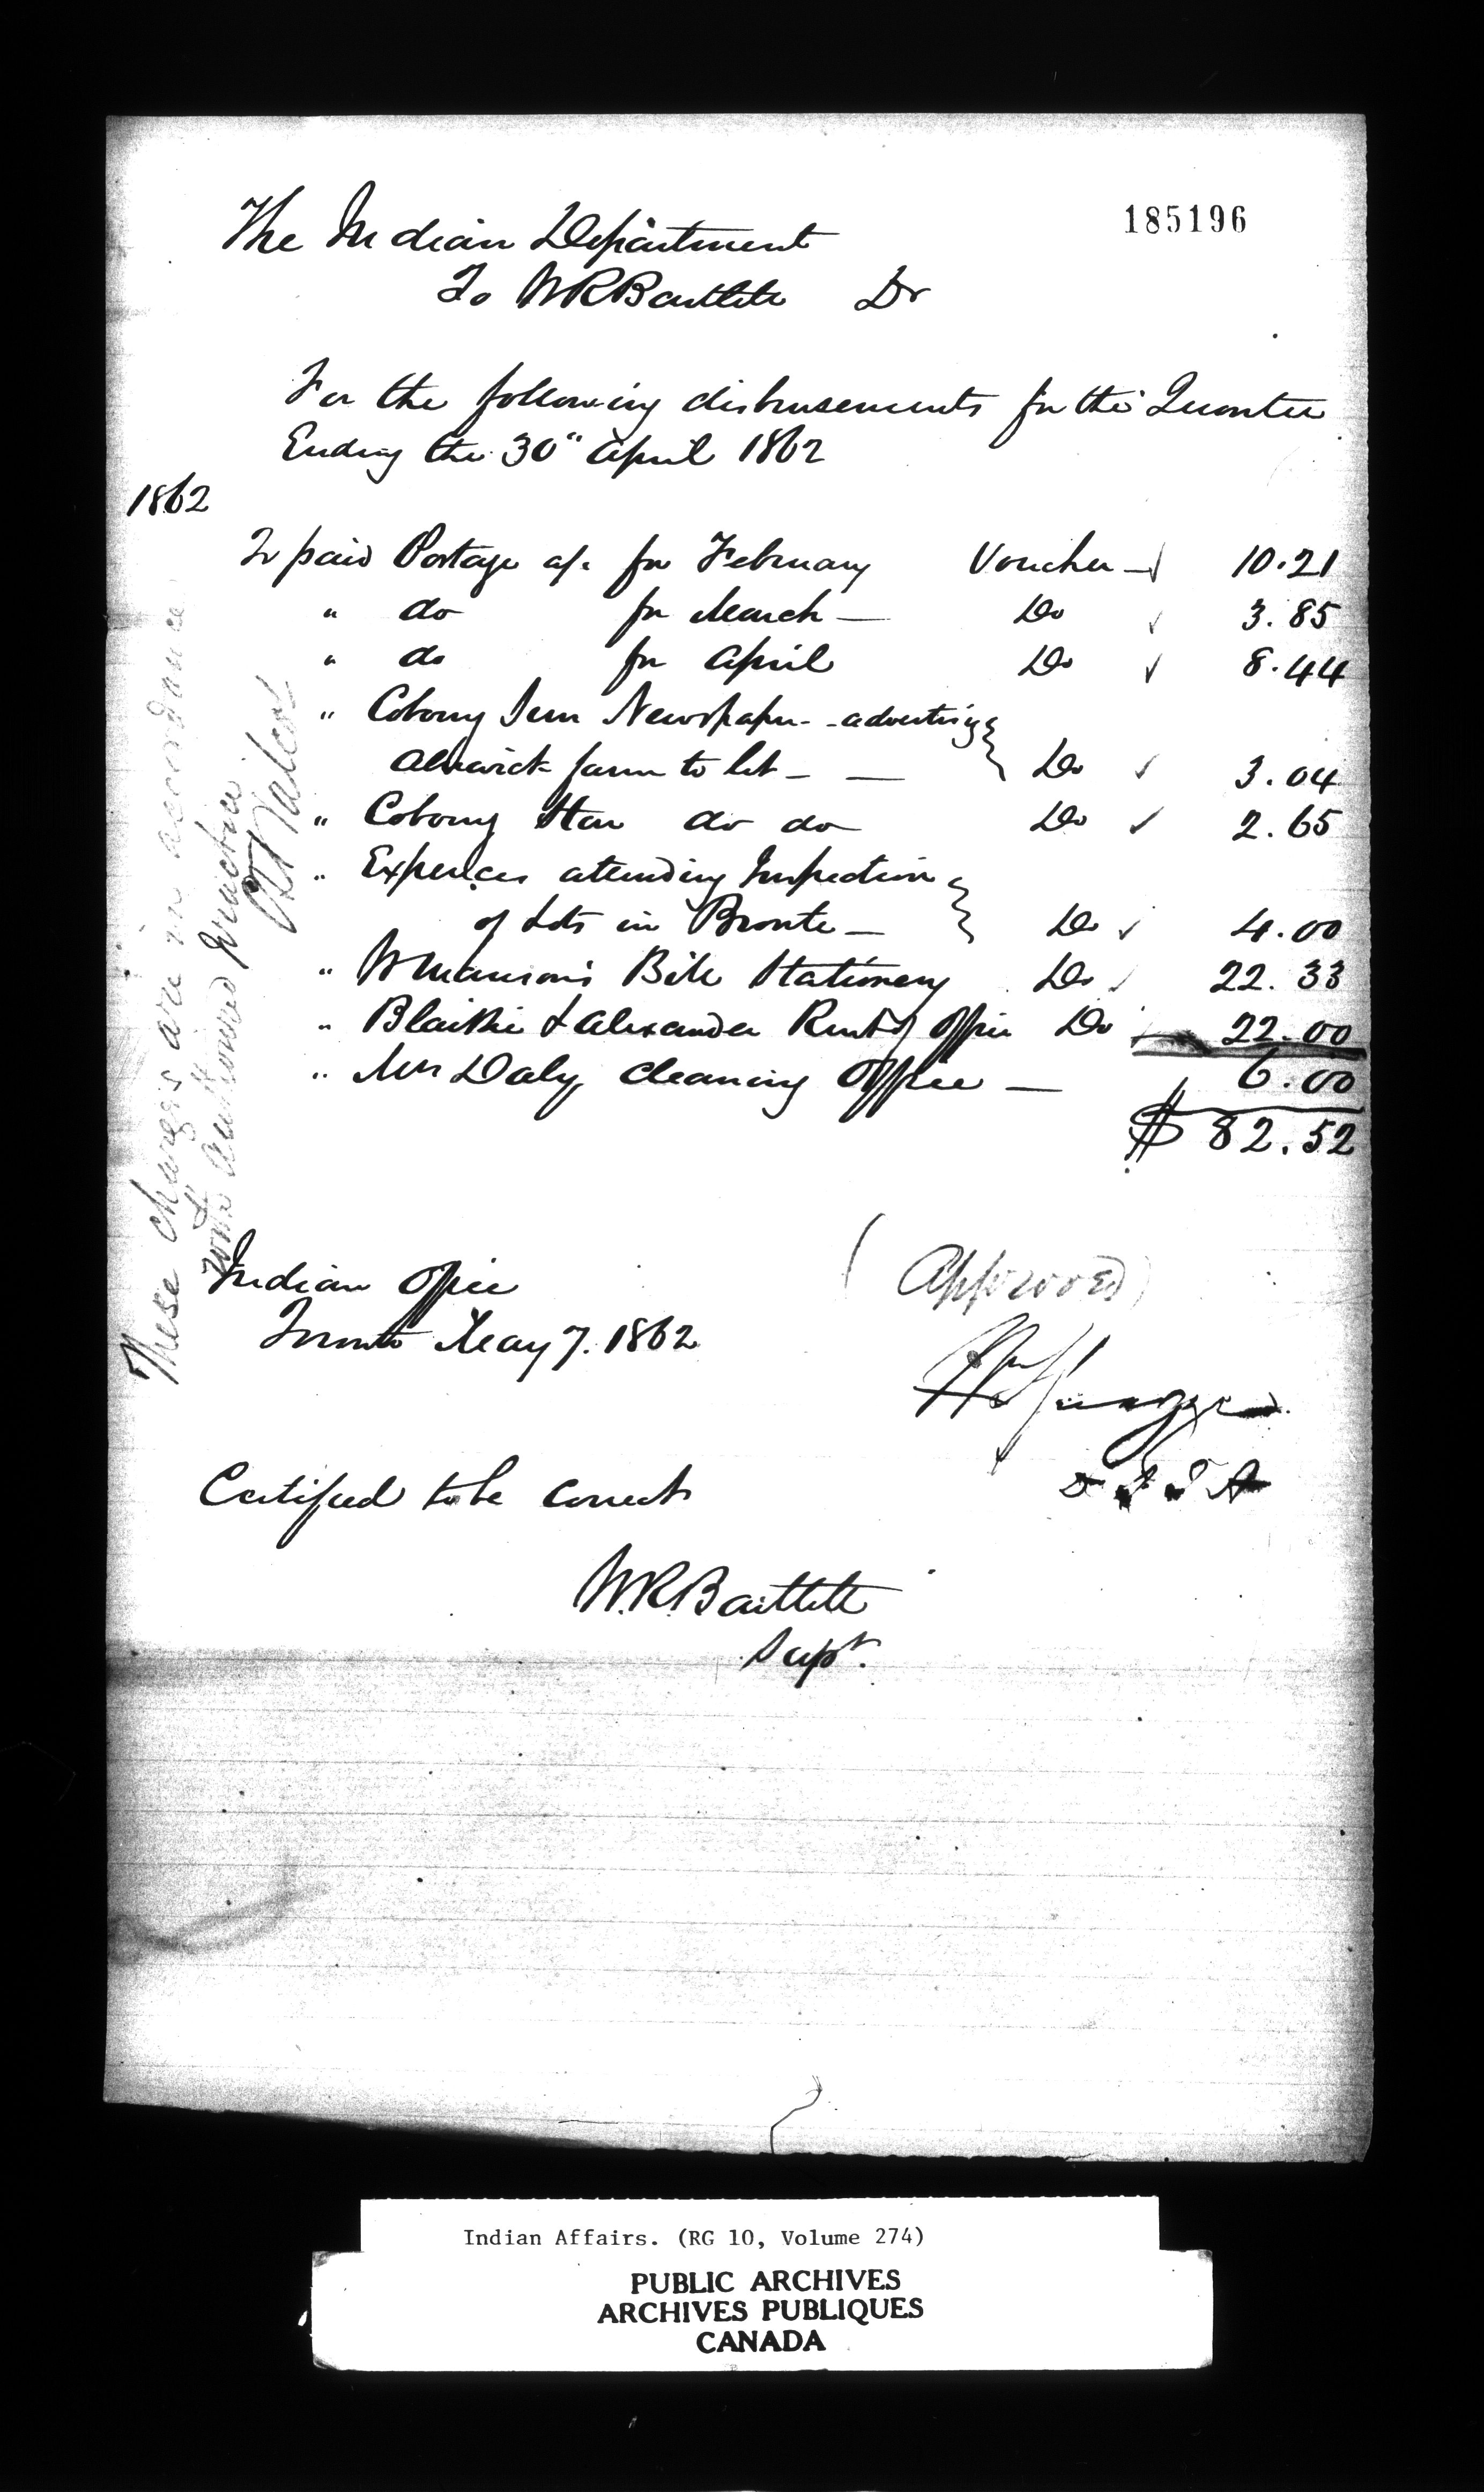 185196
The Indian Department
To WRBartlett Dr
For the following disbursements for the Quarter
Ending the 30" April 1862
1862
To paid Postage a/c for February Voucher 10.21
" do for March — Do 3.85
" do for April Do 8.44
" Cobourg Sun Newspaper - advertising
Alnwick farm to let — — Do 3.04
" Cobourg Star do do Do 2.65
" Expences attending Inspection
of Lots in Bronte — Do 4.00
" Bill Stationery Do 22.33
" Blaikie & Alexander Rent of Office Do 22.00
" Mrs Daly cleaning Office — 6.00
$ 82.52
These charges are in accordance
with authorized practice
Indian Office
Toronto May 7. 1862
(Approved)
Certified to be correct
W.R.Bartlett
Supt.
Indian Affairs. (RG 10, Volume 274)
PUBLIC ARCHIVES
ARCHIVES PUBLIQUES
CANADA